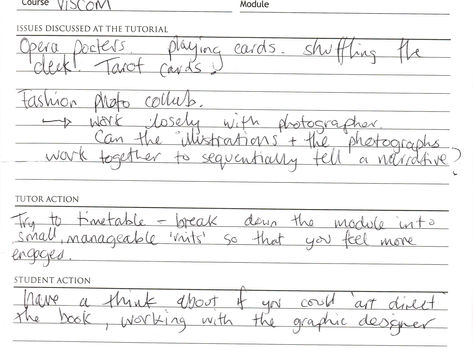 Course VISCOM Module
ISSUES DISCUSSED AT THE TUTORIAL
Opera posters. playing cards. shuffling the
deck! Tarot cards?
Fashion photo collab.
→ work closely with photographer.
Can the illustrations + the photographs
work together to sequentially tell a narrative?
TUTOR ACTION
Try to timetable – break down the module into
small, manageable 'units' so that you feel more
engaged.
STUDENT ACTION
have a think about if you could 'art direct'
the book, working with the graphic designer